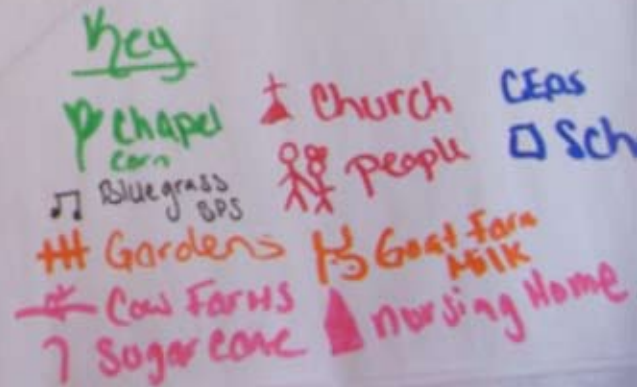 Key
Chapel
Corn
Bluegrass
SPS
Gardens
Cow Farms
Sugar cane
Church
People
Goat Farm
Milk
nursing Home
CEOs
Sch